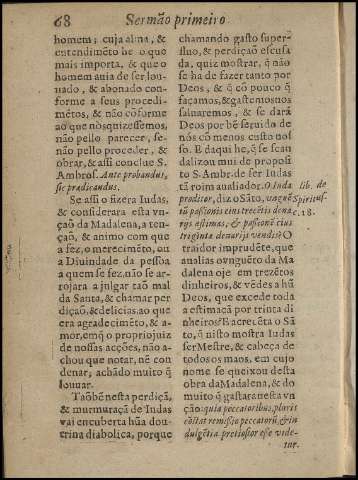 68 Sermão primeiro
homem; cuja alma, &
entendimẽto he o que
mais importa, & que o
homem auia de ser lou-
uado, & abonado con-
forme a seus procedi-
mẽtos, & não cõforme
ao que nòs quizessemos,
não pello parecer, se-
não pello proceder, &
obrar, & assi conclue S.
Ambros. Ante probandus,
sic prædicandus.
Se assi o fizera Iudas,
& considerara esta vn-
çaõ da Madalena, a ten-
çaõ, & animo com que
a fez, o merecimẽto, ou
a Diuindade da pessoa
a quem se fez, não se ar-
rojara a julgar taõ mal
da Santa, & chamar per
diçaõ, & delicias, ao que
era agradecimẽto, & a-
mor, emq̃ o proprio juiz
de nossas acções, não a-
chou que notar, nẽ con
denar; achãdo muito q̃
louuar.
Taõbẽ nesta perdiçã,
& murmuraçã de Iudas
vai encuberta hũa dou-
trina diabolica, porque
chamando gasto super-
fluo, & perdiçaõ escusa
da, quiz mostrar, q̃ não
se ha de fazer tanto por
Deos, & q̃ cõ pouco q̃
façamos, & gastemos nos
saluaremos, & se darà
Deos por bẽ seruido de
nòs cõ menos custo nos
so. E daqui he, q̃ se scan
dalizou mui de proposi
to S. Ambr. de ser Iudas
tã roim aualiador. O Iuda
proditor, diz o Sãto, vnguẽ
tũ passionis eius trecẽtis dena
rys æstimas, & passionẽ eius
triginta denarijs vendis? O
traidor imprudẽte, que
analias o vnguẽto da Ma
dalena oje em trezẽtos
dinheiros, & vẽdes a hũ
Deos, que excede toda
a estimaçã por trinta di
nheiros? E acrecẽta o Sã
to, q̃ nisto mostra Iudas
ser Mestre, & cabeça de
todos os maos, em cujo
nome se queixou desta
obra da Madalena, & do
muito q̃ gastara nesta vn
ção: quia peccatoribus, pluris
cõstat remissio peccatorũ, grãn
dulgẽtia pretiosior esse vide-
tur.
lib. de
Spiritus
c. 18.